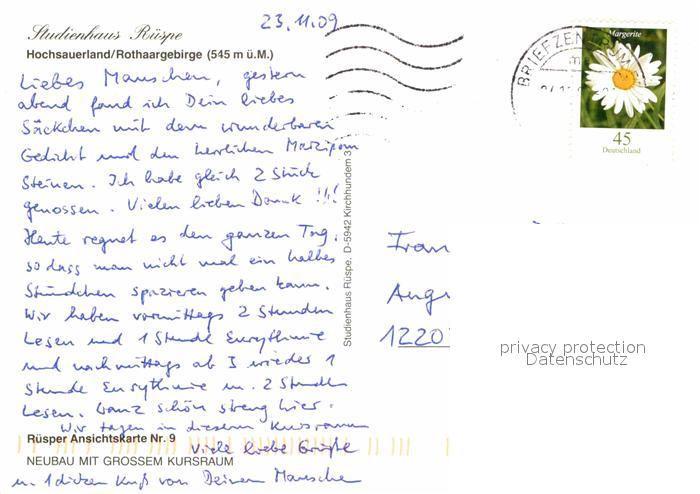 23.11.09
Studienhaus Rüspe
Hochsauerland/Rothaargebirge (545 m ü.M.)
Liebes Mauschen, gestern
abend fand ich Dein liebes
Säckchen mit dem wunderbaren
Gedicht und den herrlichen Marzipan
Steinen. Ich habe gleich 2 Stück
genossen. Vielen lieben Dank !!!
Heute regnet es den ganzen Tag,
so dass man nicht mal ein halbes
Stündchen spazieren gehen kann.
Wir haben vormittags 2 Stunden
Lesen und 1 Stunde Eurythmie
und nachmittags ab 3 wieder 1
Stunde Eurythmie u. 2 Stunden
Lesen. Ganz schön streng hier.
Wir tagen in diesem Kursraum
Rüsper Ansichtskarte Nr. 9
Viele liebe Grüße
NEUBAU MIT GROSSEM KURSRAUM
u. 1 dicken Kuß von Deinem Mausche
Studienhaus Rüspe, D-5942 Kirchhundem 3
BRIEFZENTRUM
Margerite
45
Deutschland
Frau
Augu
1220
privacy protection
Datenschutz